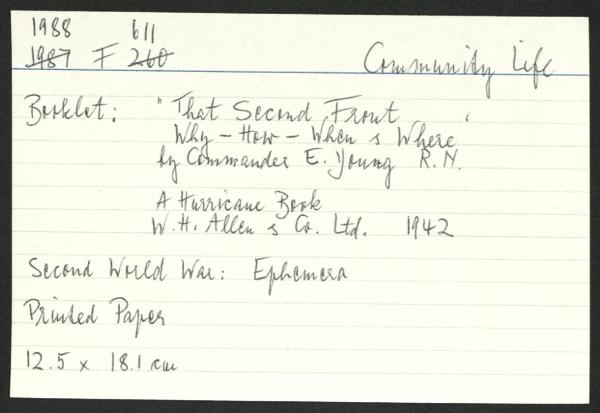 1988 611
1987 F 260
Community Life
Booklet: "That Second Front
Why - How - When & Where"
by Commander E. Young R.N.
A Hurricane Book
W.H. Allen & Co. Ltd. 1942
Second World War: Ephemera
Printed Paper
12.5 x 18.1 cm